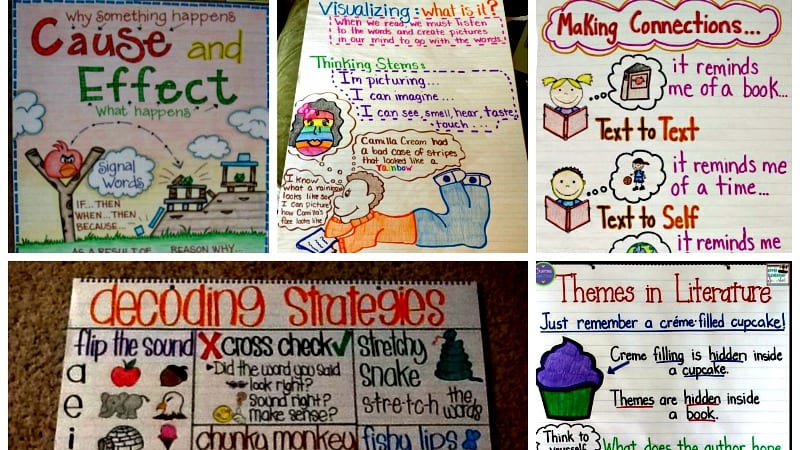 Why something happens
Cause and
Effect
What happens
Signal
Words
IF...THEN
WHEN...THEN
BECAUSE...
AS A RESULT OF
REASON WHY...
Visualizing: what is it?
When we read, we must listen
to the words and create pictures
in our mind to go with the words.
Thinking Stems:
I'm picturing...
I can imagine...
I can see, smell, hear, taste,
touch...
Camilla Cream had
a bad case of stripes
that looked like a
rainbow
I know
what a rainbow
looks like so
I can picture
how Camilla's
face looks like.
Making Connections...
it reminds
me of a book...
Text to Text
it reminds me
of a time...
Text to Self
it reminds me
decoding Strategies
flip the sound
a
e
i
X cross check ✓
Did the word you said
look right?
sound right?
make sense?
chunky monkey
stretchy
snake
stretch the
words
fishy lips
Themes in Literature
Just remember a créme-filled cupcake!
Creme filling is hidden inside
a cupcake.
Themes are hidden inside
a book.
Think to
yourself
What does the author hope